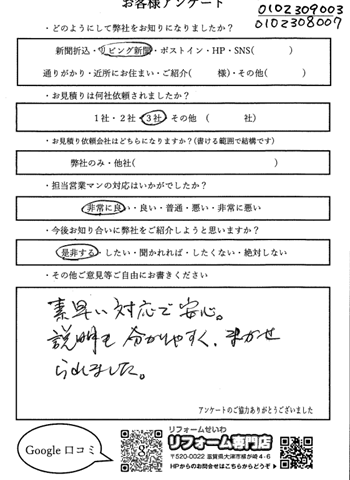 お客様アンケート
0102309003
0102308007
・どのようにして弊社をお知りになりましたか？
新聞折込・リビング新聞・ポストイン・HP・SNS(　　　)
通りがかり・近所にお住まい・ご紹介(　　　様)・その他(　　　)
・お見積りは何社依頼されましたか？
1社・2社・3社・その他　(　　　社)
・お見積り依頼会社はどちらになりますか？(書ける範囲で結構です)
弊社のみ・他社(　　　)
・担当営業マンの対応はいかがでしたか？
非常に良い・良い・普通・悪い・非常に悪い
・今後お知り合いに弊社をご紹介しようと思いますか？
是非する・したい・聞かれれば・したくない・絶対しない
・その他ご意見等ご自由にお書きください
素早い対応で安心。
説明も分かりやすく、まかせ
られました。
アンケートのご協力ありがとうございました
Google 口コミ
リフォームせいわ
リフォーム専門店
〒520-0022 滋賀県大津市柳が崎4-6
HPからのお問合せはこちらからどうぞ